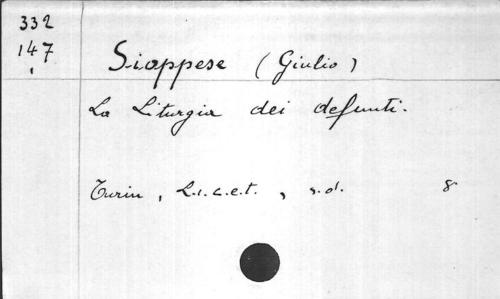 332
147
Sioppese (Giulio)
La Liturgia dei defunti.
Turin, L.i.c.e.t., s.d. 8